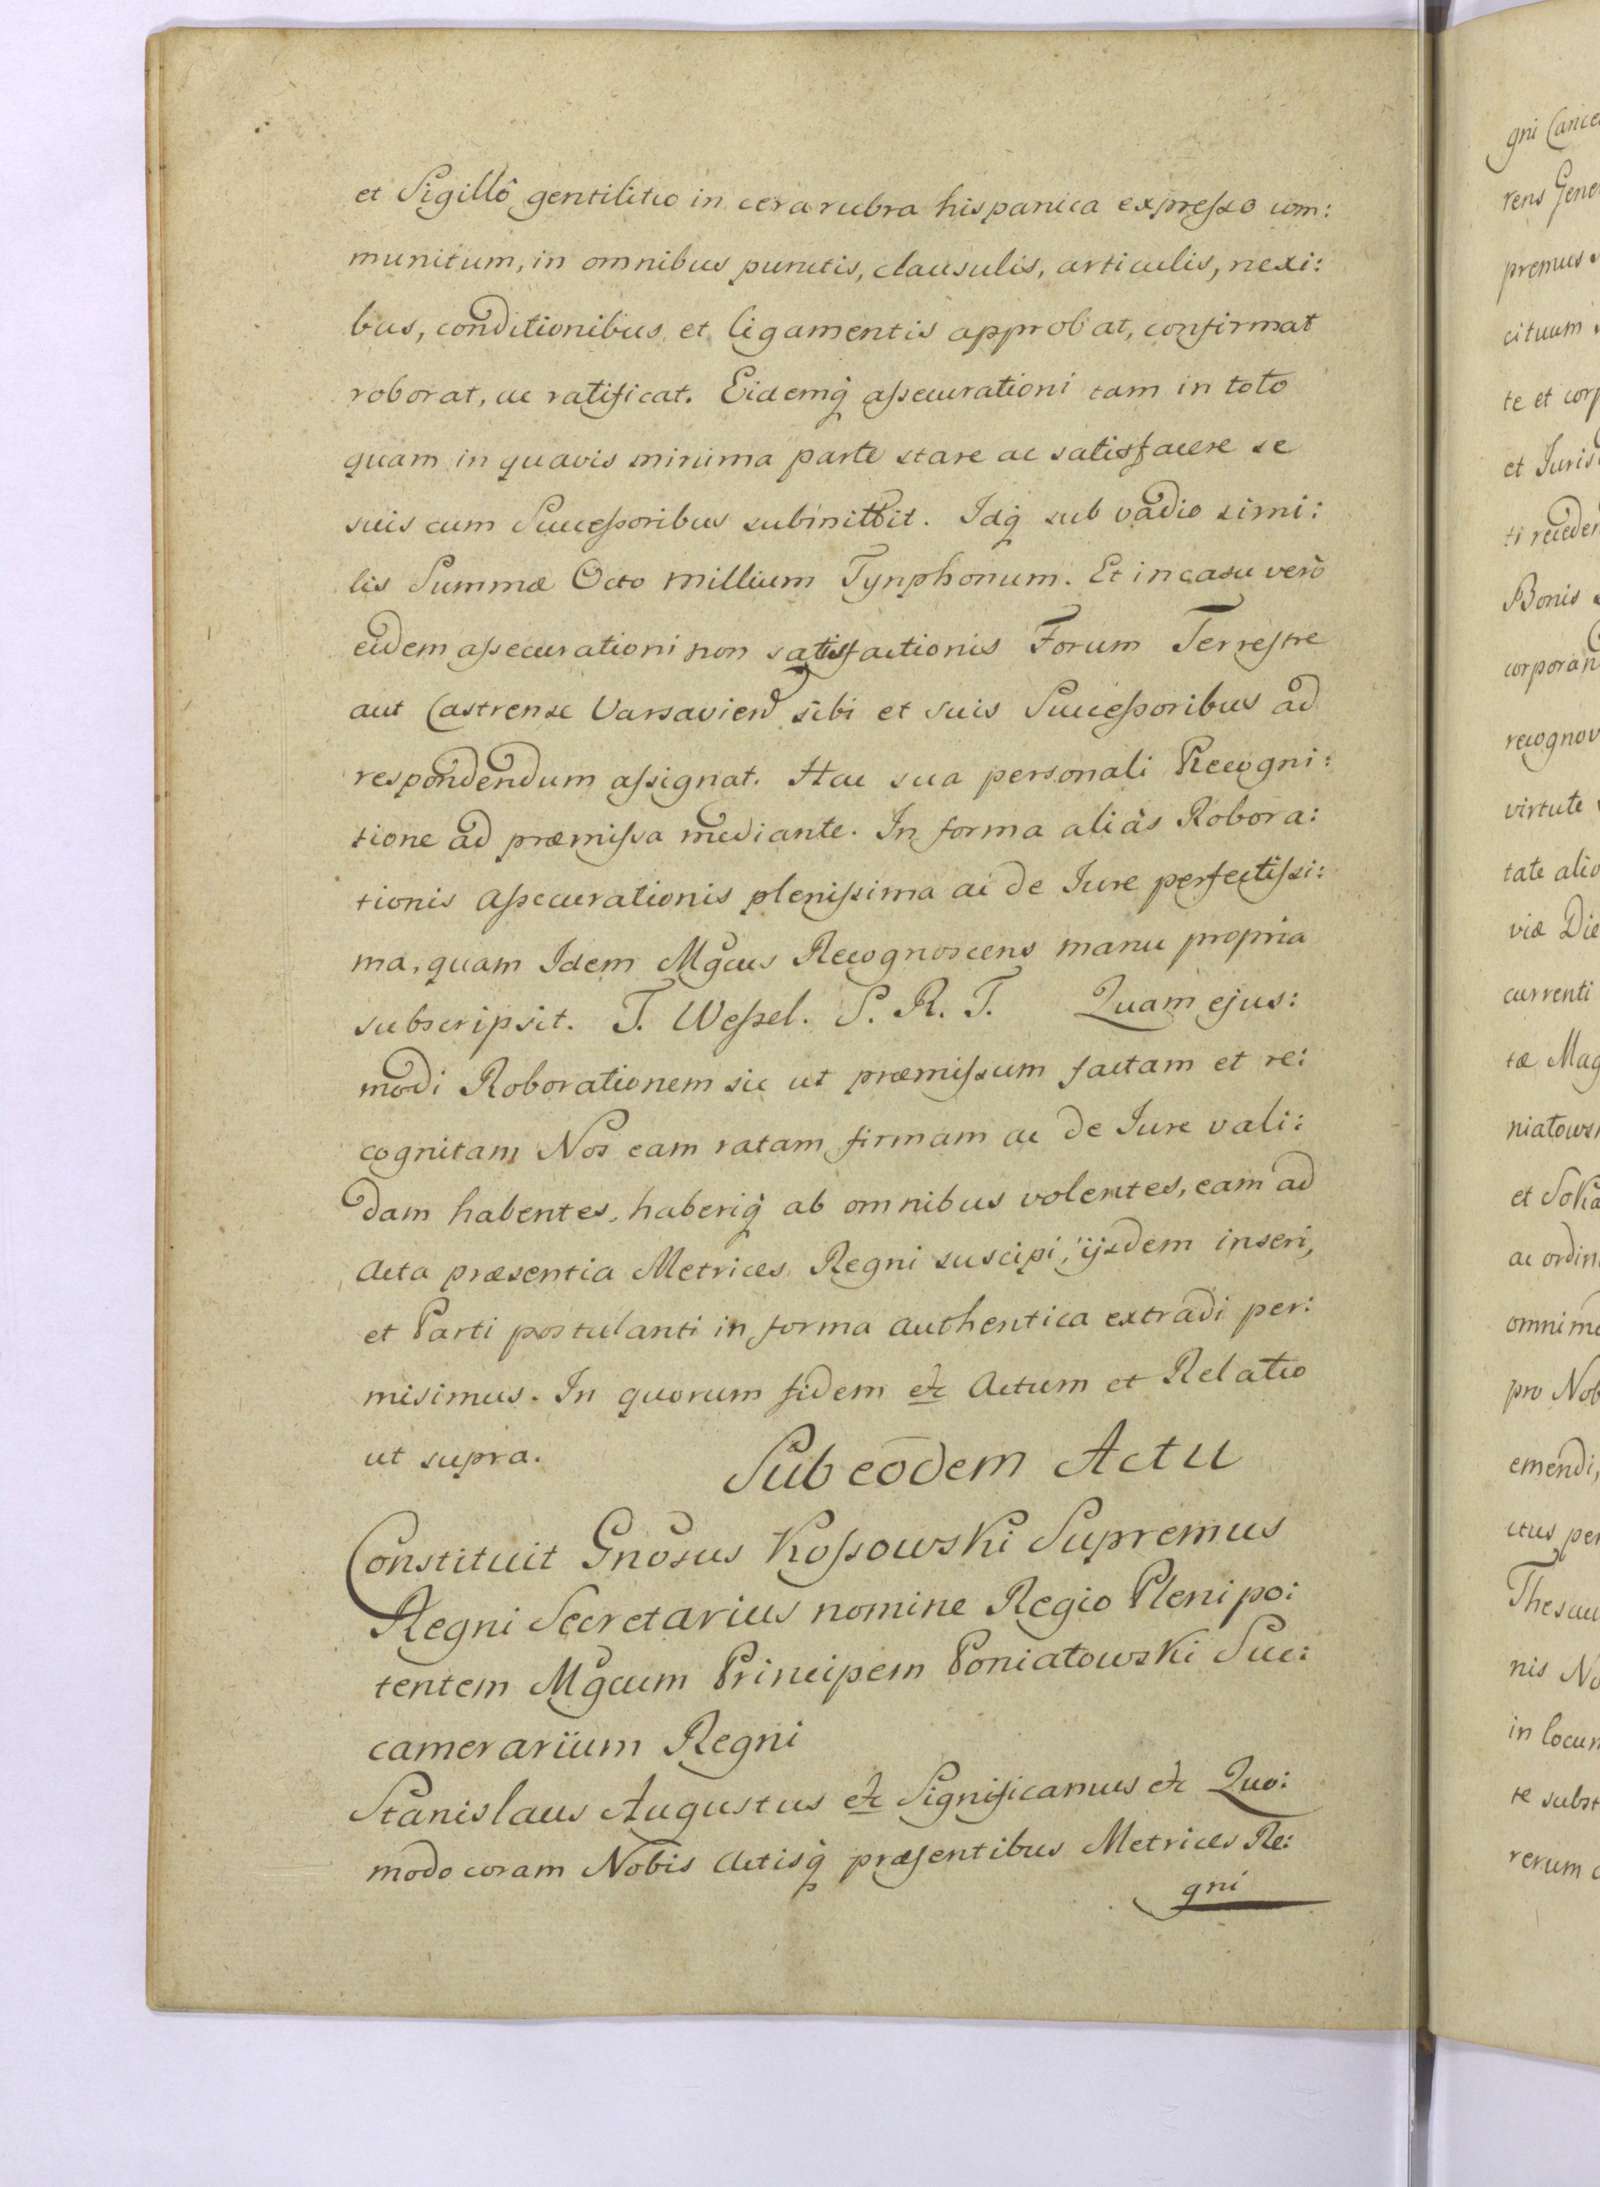 et Sigillô gentilitio in cera rubra hispanica expresso com:
munitum, in omnibus punctis, clausulis, articulis, nexi:
bus, conditionibus et ligamentis approbat, confirmat
roborat, ac ratificat. Eidemq̀ assecurationi tam in toto
quam in quavis minima parte stare ac satisfacere se
suis cum Successoribus submittit. Idq̀ sub vadio simi:
lis Summæ Octo millium Tynphonum. Et in casu verò
eidem assecurationi non satisfactionis Forum Terrestre
aut Castrense Varsavien̄ sibi et suis Successoribus ad
respondendum assignat. Hac sua personali Recogni:
tione ad præmissa mediante. In forma aliàs Robora:
tionis assecurationis plenissima ac de Jure perfectissi:
ma, quam Idem Mg̃cus Recognoscens manu propria
subscripsit. T. Wessel. P. R. T. Quam ejus:
modi Roborationem sic ut præmissum factam et re:
cognitam Nos eam ratam firmam ac de Jure vali:
dam habentes, haberiq̀ ab omnibus volentes, eam ad
Acta præsentia Metrices Regni suscipi, ijsdem inseri,
et Parti postulanti in forma authentica extradi per:
misimus. In quorum fidem etc Actum et Relatio
ut supra.
Sub eōdem Actu
Constituit Gñosus Kossowski Supremus
Regni Secretarius nomine Regio Plenipo:
tentem Mg̃cum Principem Poniatowski Suc:
camerariüm Regni
Stanislaus Augustus etc Significamus etc Quo:
modo coram Nobis Actisq̀ præsentibus Metrices Re:
gni
gni Cance
rens Gene
premus
cituum
te et corp
et Juris
ti receden
Bonis
corporan
recognov
virtute
tate alio
viæ Die
currenti
tæ Mag
niatows
et Soka
ac ordin
omnimo
pro Nob
emendi,
ctus per
Thesau
nis No
in locum
te subst
rerum